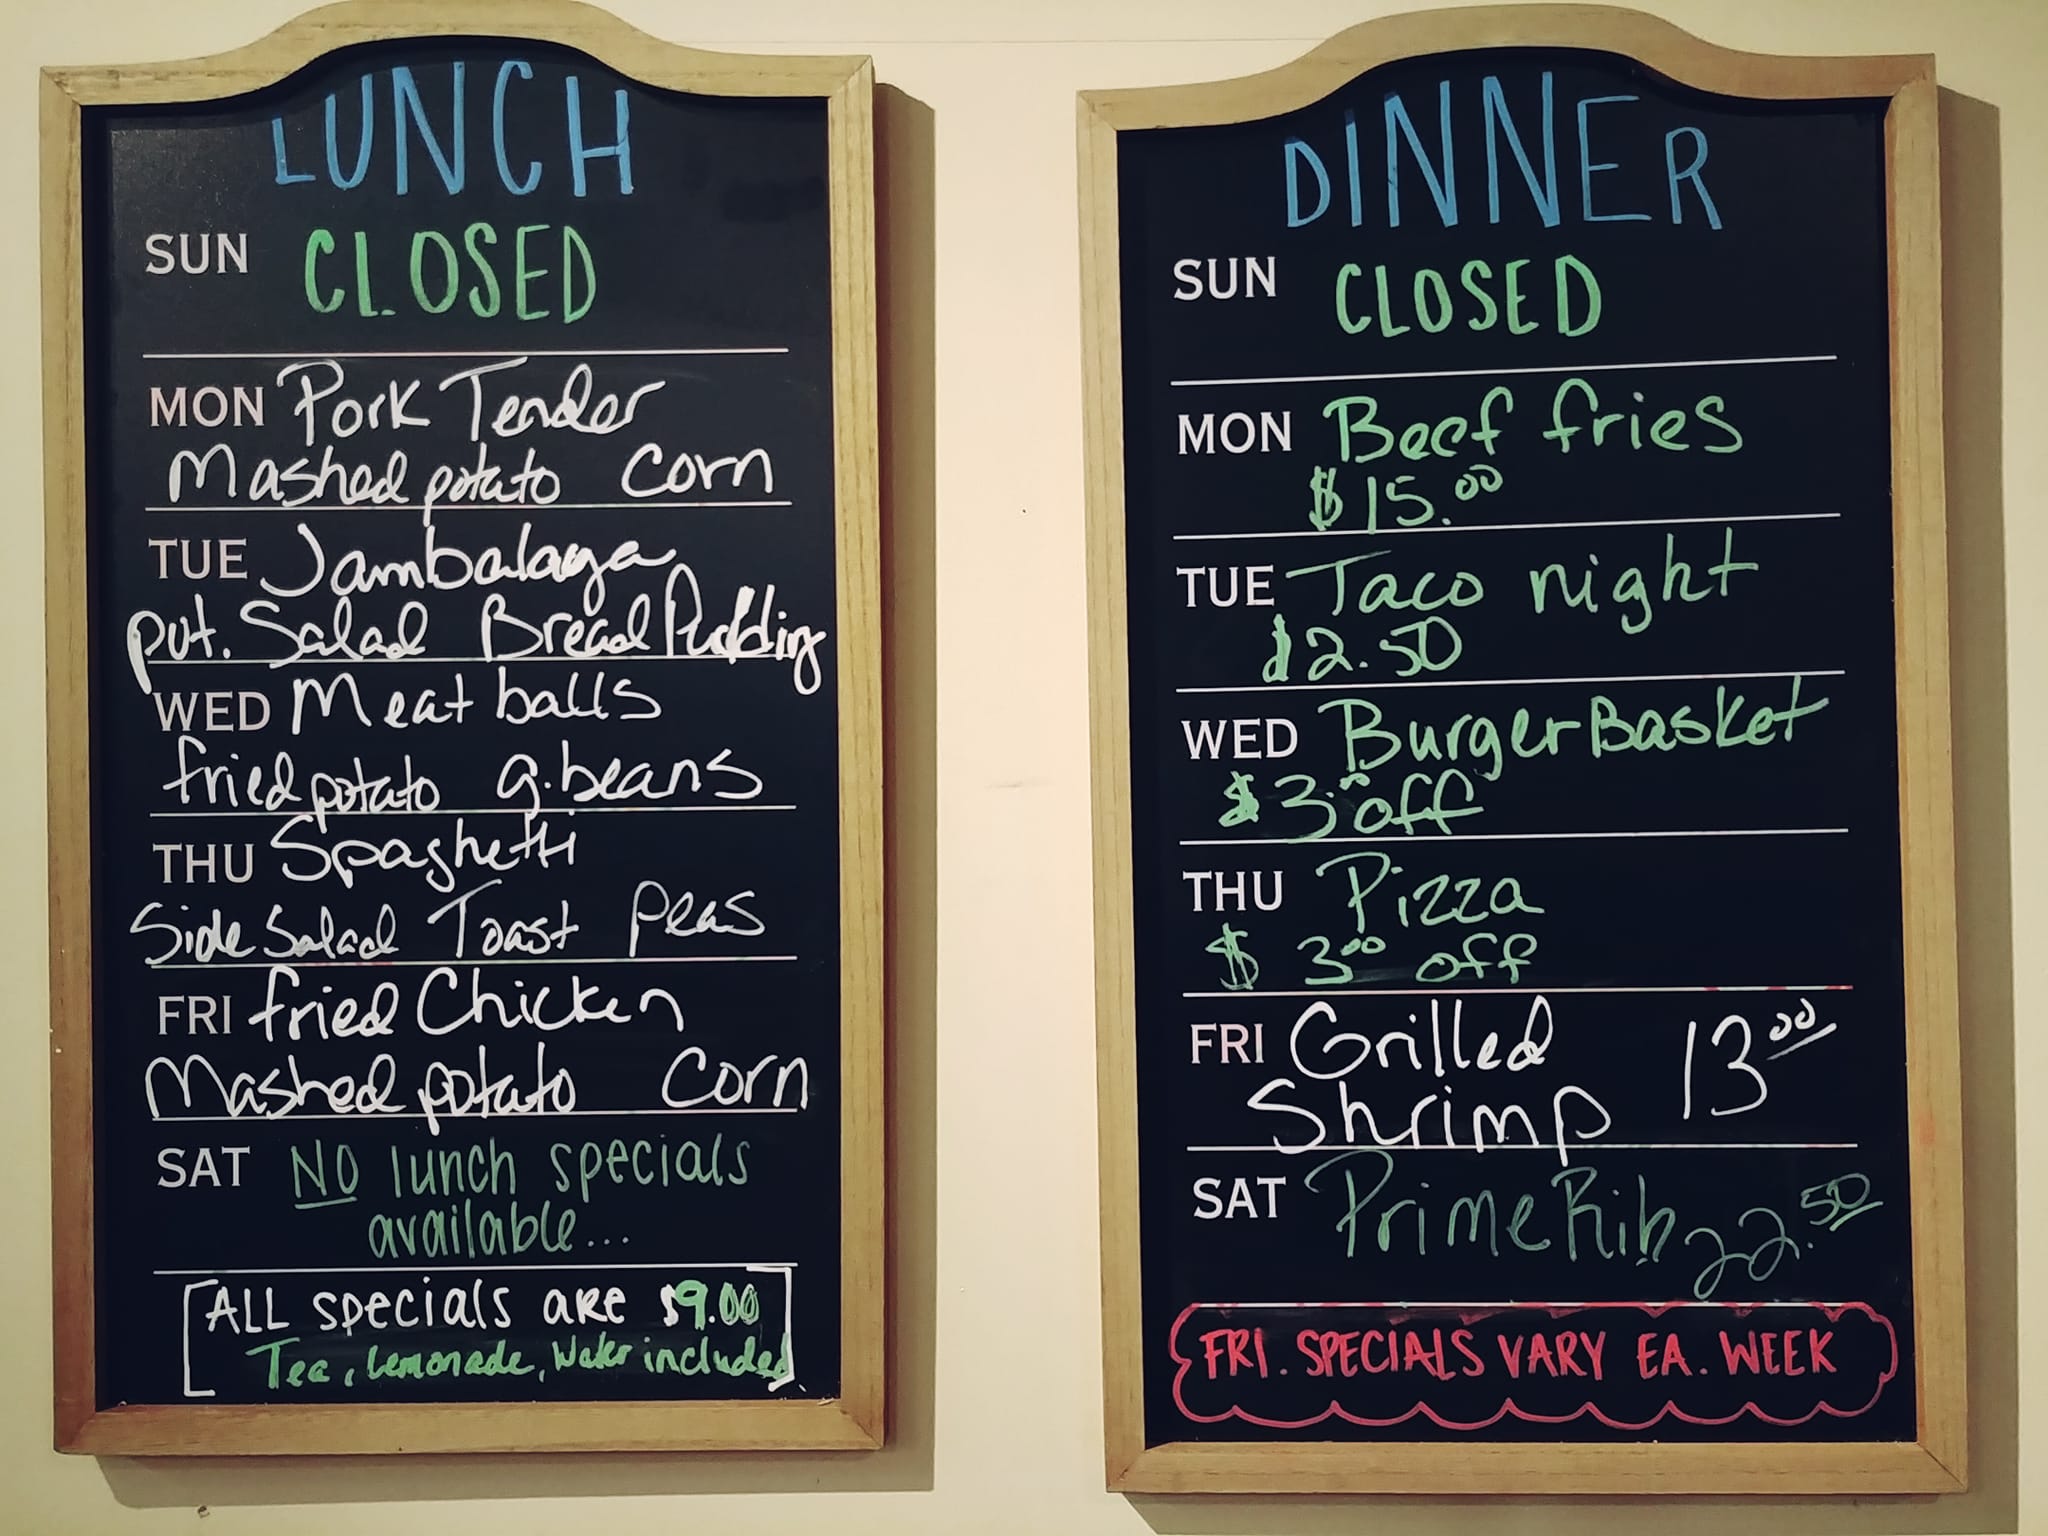 LUNCH
SUN CLOSED
MON Pork Tender
Mashed potato corn
TUE Jambalaya
pot. Salad Bread Pudding
WED Meat balls
fried potato g.beans
THU Spaghetti
Side Salad Toast peas
FRI fried Chicken
Mashed potato Corn
SAT NO lunch specials
available...
[ALL specials are $9.00
Tea, Lemonade, Water included]
DINNER
SUN CLOSED
MON Beef fries
$15.00
TUE Taco night
$2.50
WED Burger Basket
$3.00 off
THU Pizza
$3.00 off
FRI Grilled 13.00
Shrimp
SAT Prime Rib 22.50
FRI. SPECIALS VARY EA. WEEK